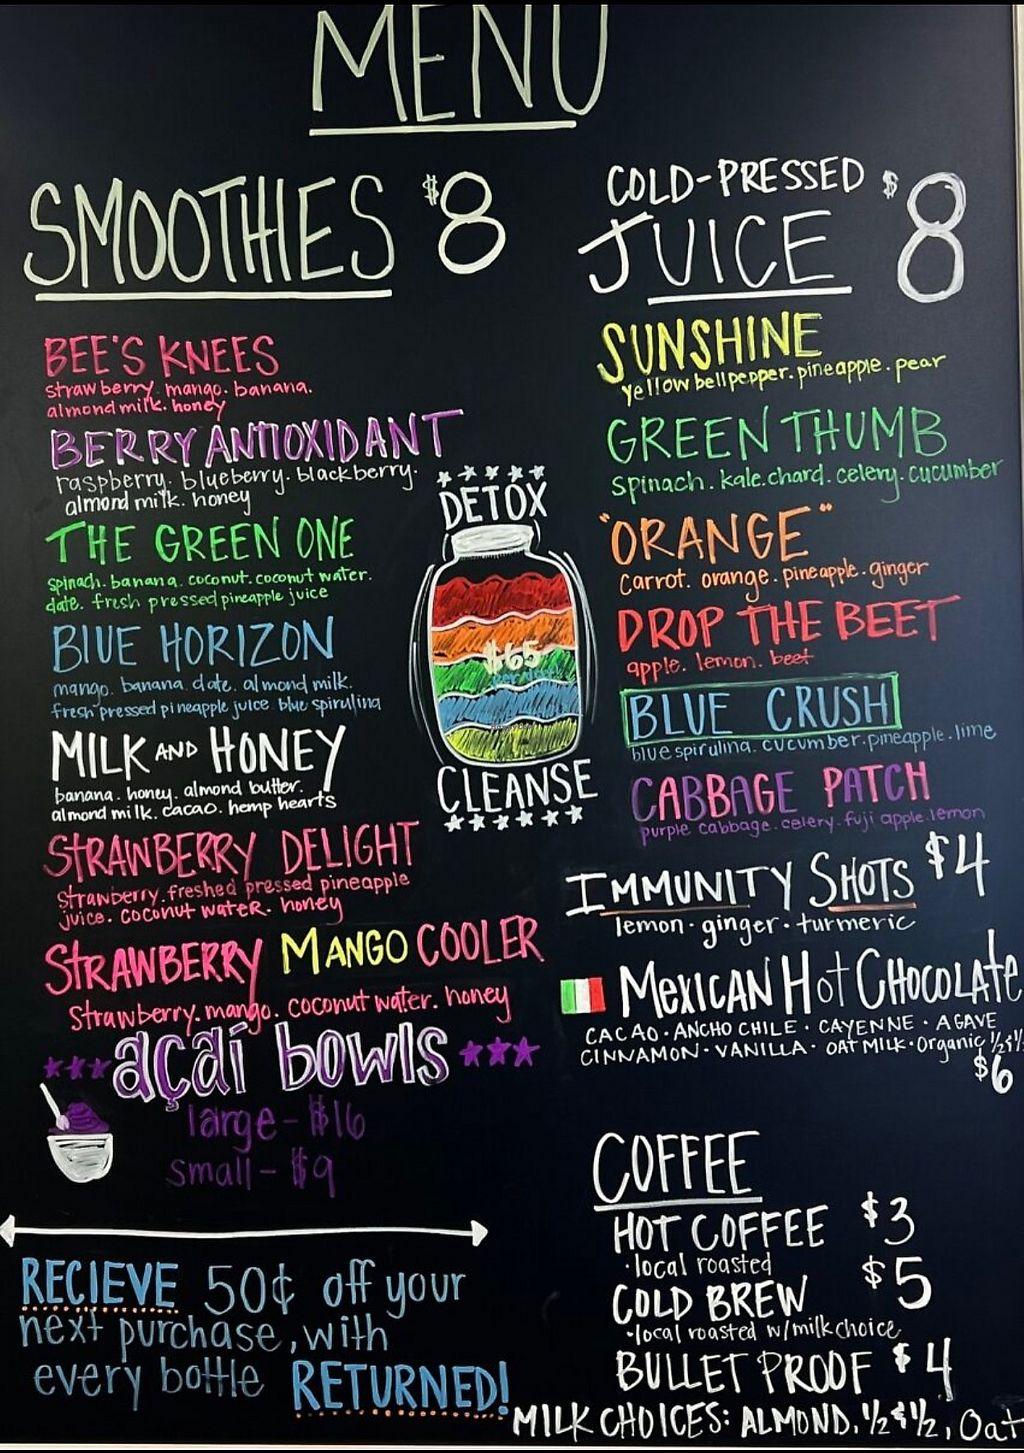 MENU
SMOOTHIES $8
BEE'S KNEES
strawberry. mango. banana.
almond milk. honey
BERRY ANTIOXIDANT
raspberry. blueberry. blackberry.
almond milk. honey
THE GREEN ONE
spinach. banana. coconut. coconut water.
date. fresh pressed pineapple juice
BLUE HORIZON
mango. banana. date. almond milk.
fresh pressed pineapple juice. blue spirulina
MILK AND HONEY
banana. honey. almond butter.
almond milk. cacao. hemp hearts
STRAWBERRY DELIGHT
strawberry. freshed pressed pineapple
juice. coconut water. honey
STRAWBERRY MANGO COOLER
Strawberry. mango. coconut water. honey
açaí bowls
large - $16
small - $9
RECIEVE 50¢ off your
next purchase, with
every bottle RETURNED!
DETOX
$65
CLEANSE
COLD-PRESSED
JUICE $8
SUNSHINE
yellow bell pepper. pineapple. pear
GREEN THUMB
spinach. kale. chard. celery. cucumber
"ORANGE"
carrot. orange. pineapple. ginger
DROP THE BEET
apple. lemon. beet
BLUE CRUSH
blue spirulina. cucumber. pineapple. lime
CABBAGE PATCH
purple cabbage. celery. fuji apple. lemon
IMMUNITY SHOTS $4
lemon · ginger · turmeric
MEXICAN Hot CHOCOLATE
CACAO · ANCHO CHILE · CAYENNE · AGAVE
CINNAMON · VANILLA · OAT MILK · Organic ½ & ½
$6
COFFEE
HOT COFFEE $3
· local roasted
COLD BREW $5
· local roasted w/ milk choice
BULLET PROOF $4
MILK CHOICES: ALMOND, ½ & ½, Oat